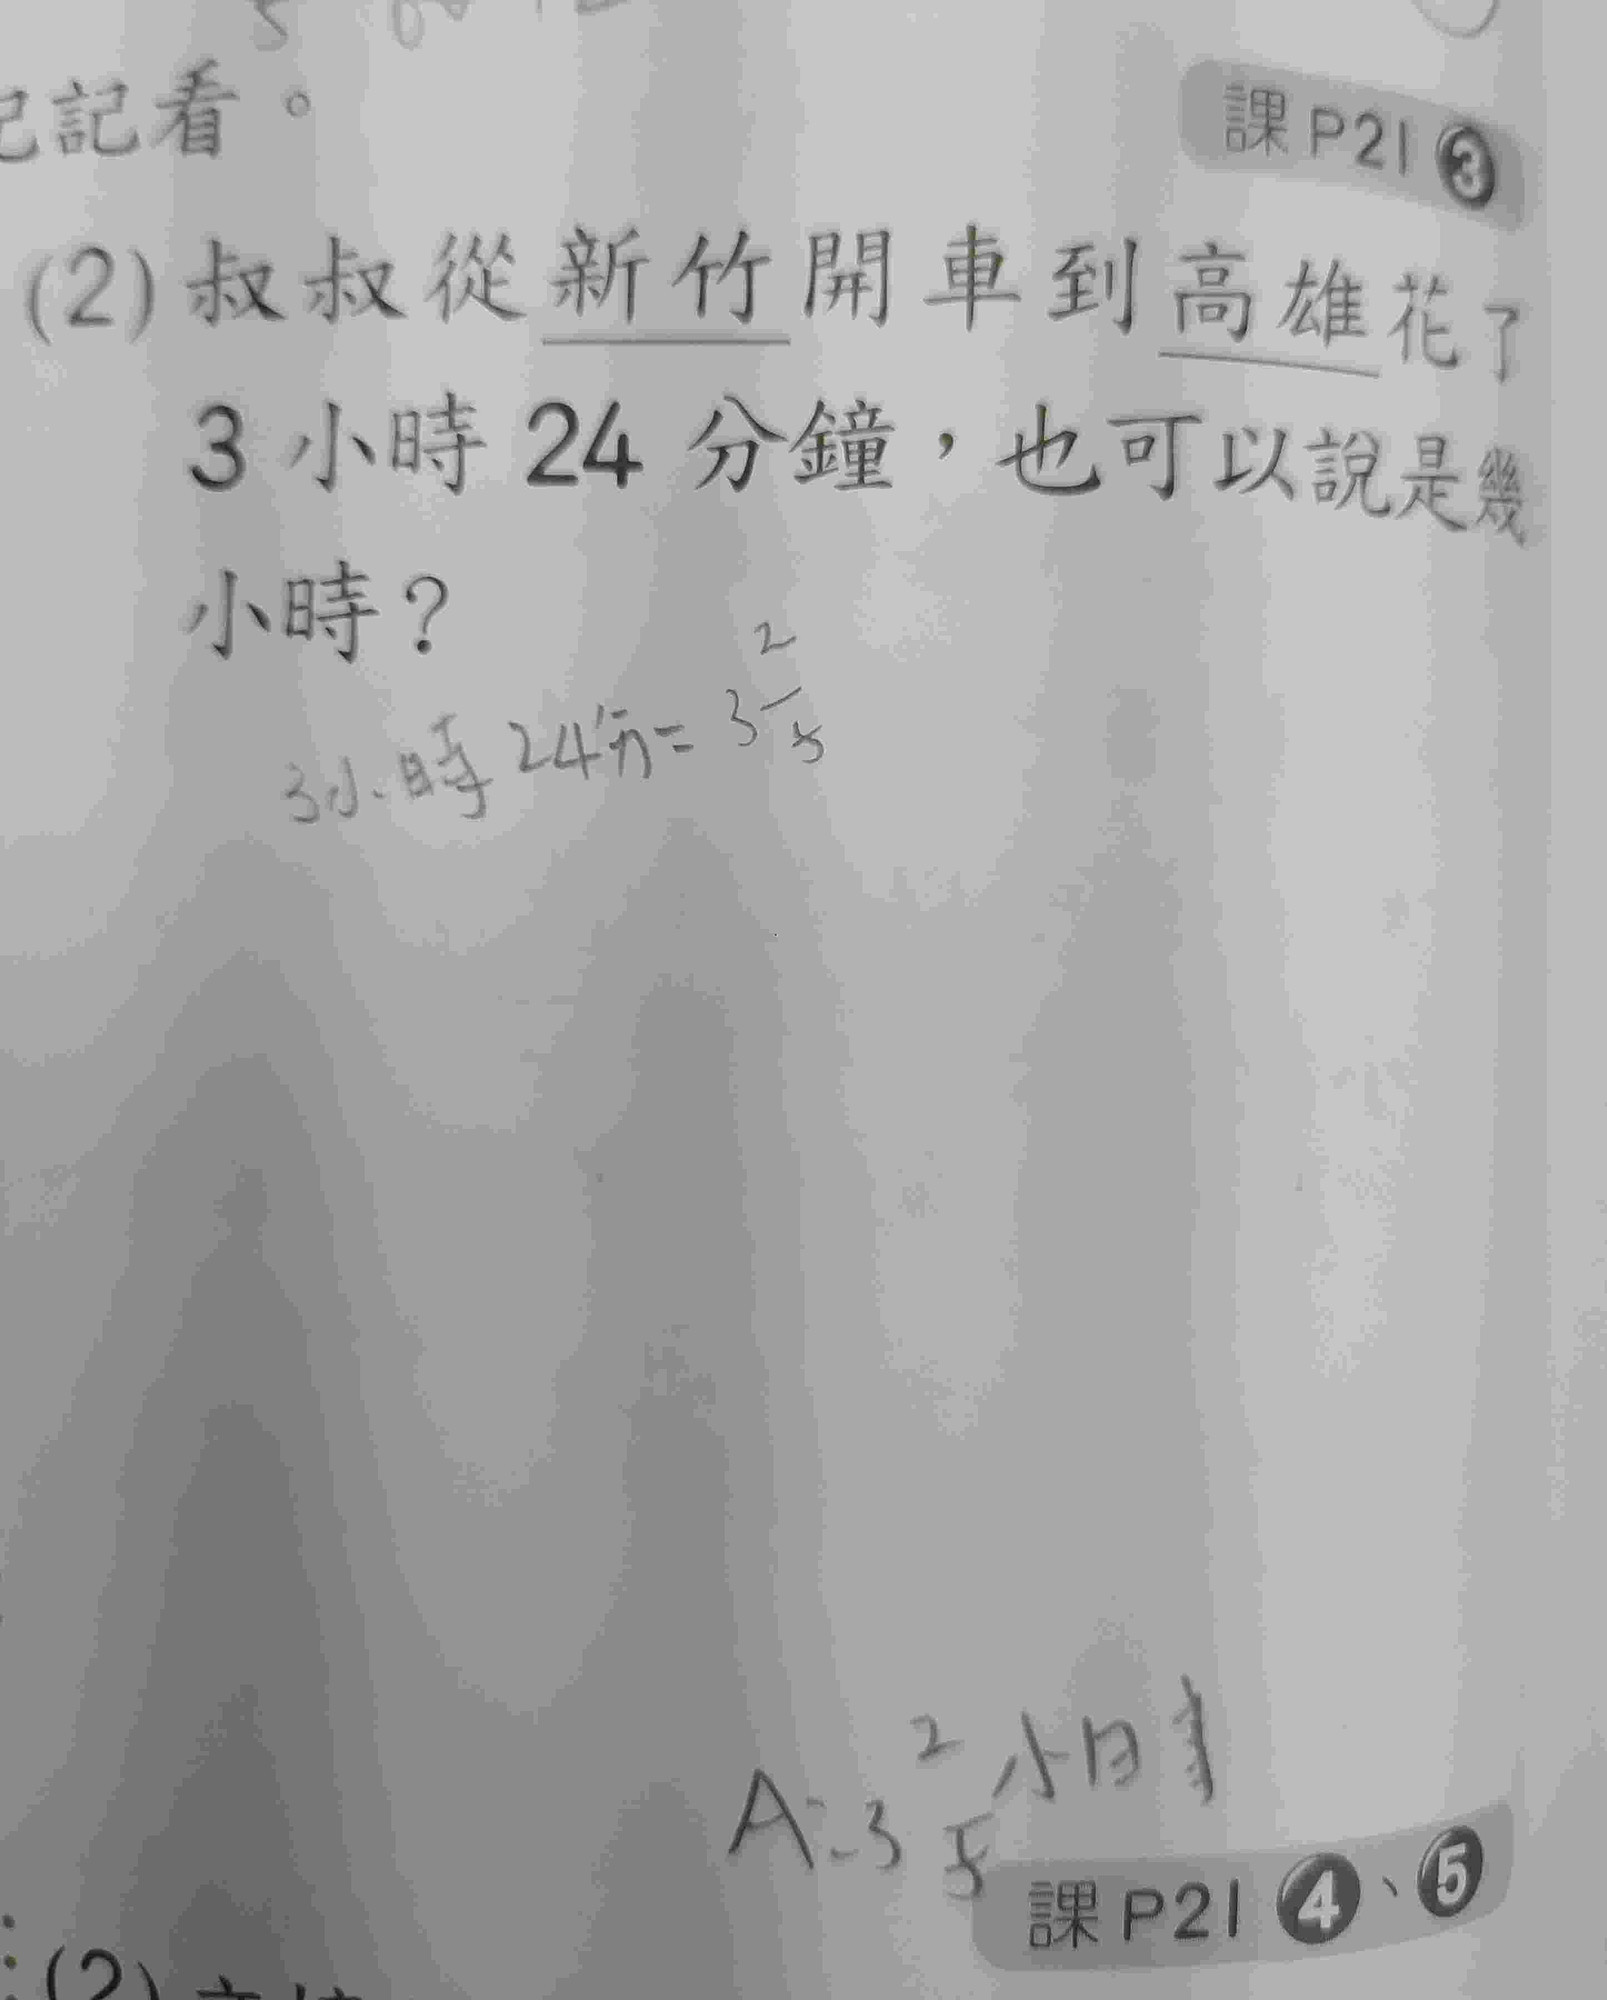 記看。
課P21 3
(2)叔叔從新竹開車到高雄花了
3小時24分鐘，也可以說是幾
小時？
3小時24分=3 2/5
A:3 2/5小時
課P21 4、5
(2)